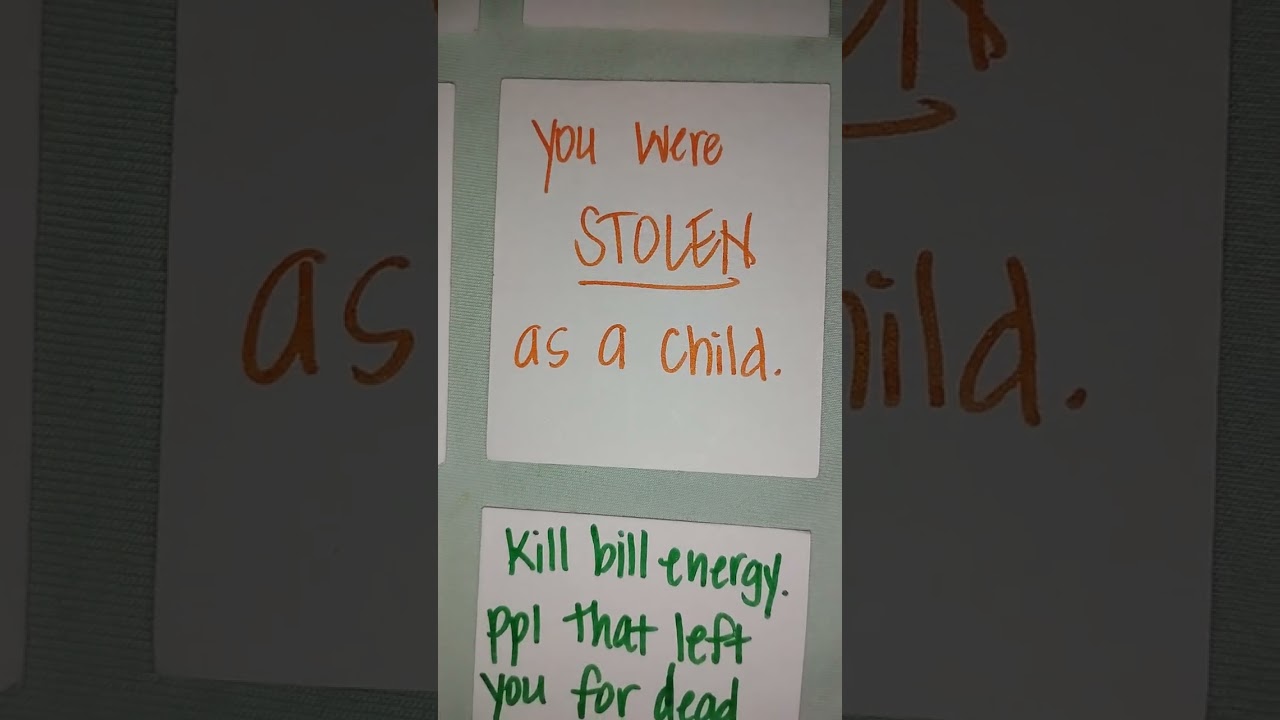 you were
STOLEN
as a child.
Kill bill energy.
ppl that left
you for dead